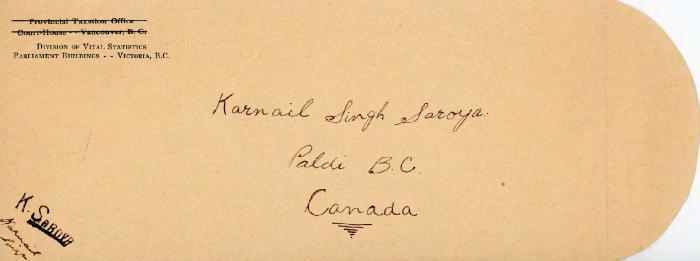 Provincial Taxation Office
Court-House - - Vancouver, B. C.
Division of Vital Statistics
Parliament Buildings - - Victoria, B.C.
Karnail Singh Saroya.
Paldi B.C.
Canada
K. SAROYA
Karnail